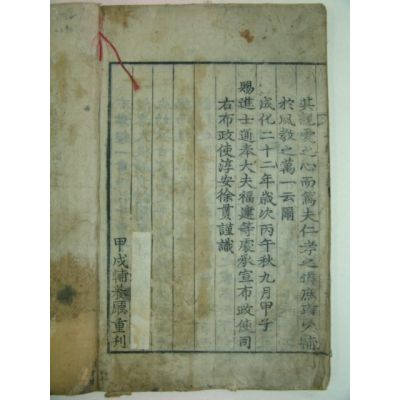 其親愛之心而篤夫仁孝之道庶幾少補
於風教之萬一云爾
成化二十二年歲次丙午秋九月甲子
賜進士通奉大夫福建等處承宣布政使司
右布政使淳安徐貫謹識
甲戌輔養廳重刊